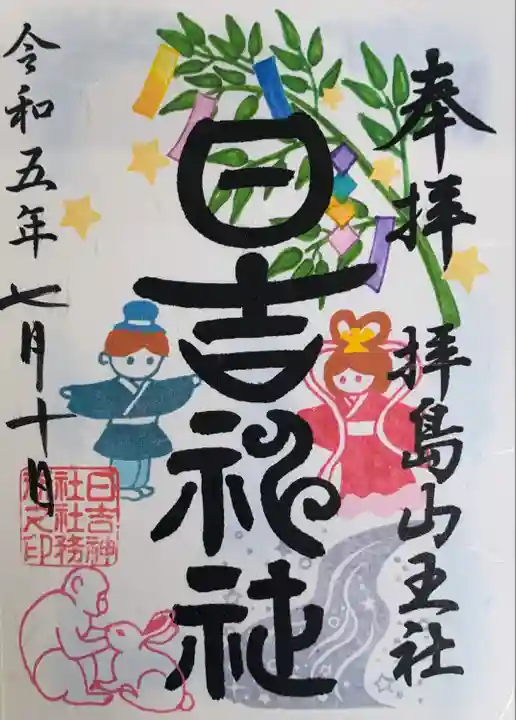 奉拝 拝島山王社
日吉神社
令和五年七月十日
日吉神
社社務
所之印